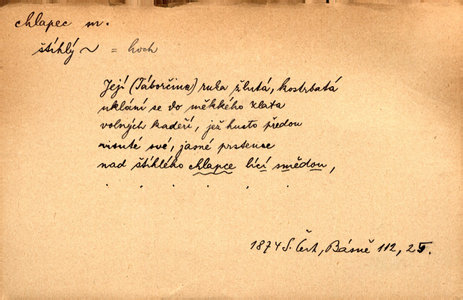 chlapec m.
štíhlý ~ = hoch
Její (Táborčina) ruka žlutá, kostrbatá
uklání se do měkkého zlata
volných kadeří, jež husto předou
vinuté své, jasné prstence
nad štíhlého chlapce lící smědou,
. . . . . .
1874 S. Čech, Básně 112, 25.